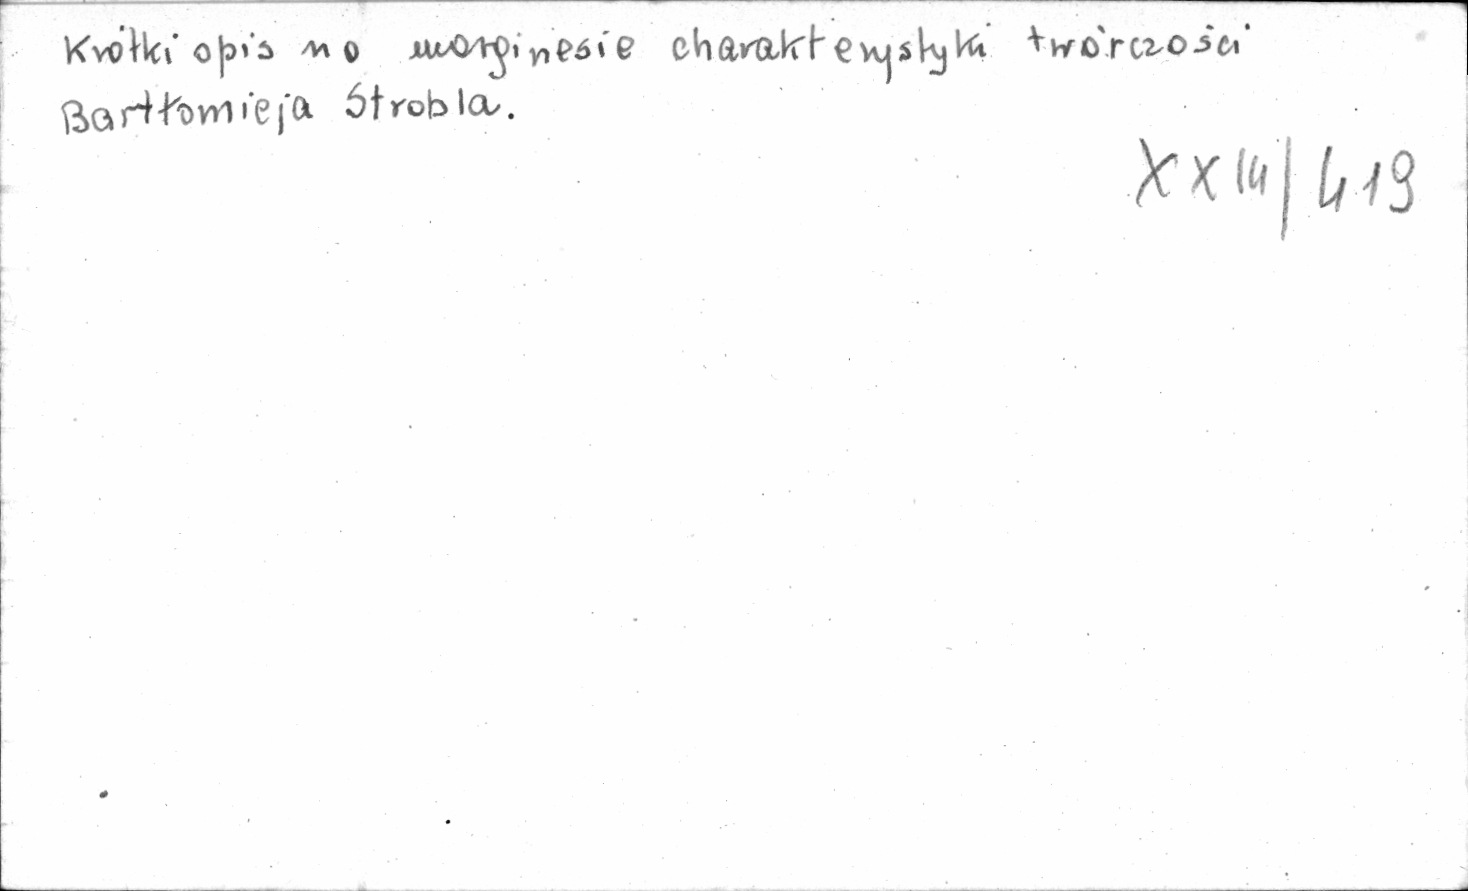 Krótki opis na marginesie charakterystyki twórczości
Bartłomieja Strobla.
XXIII/419